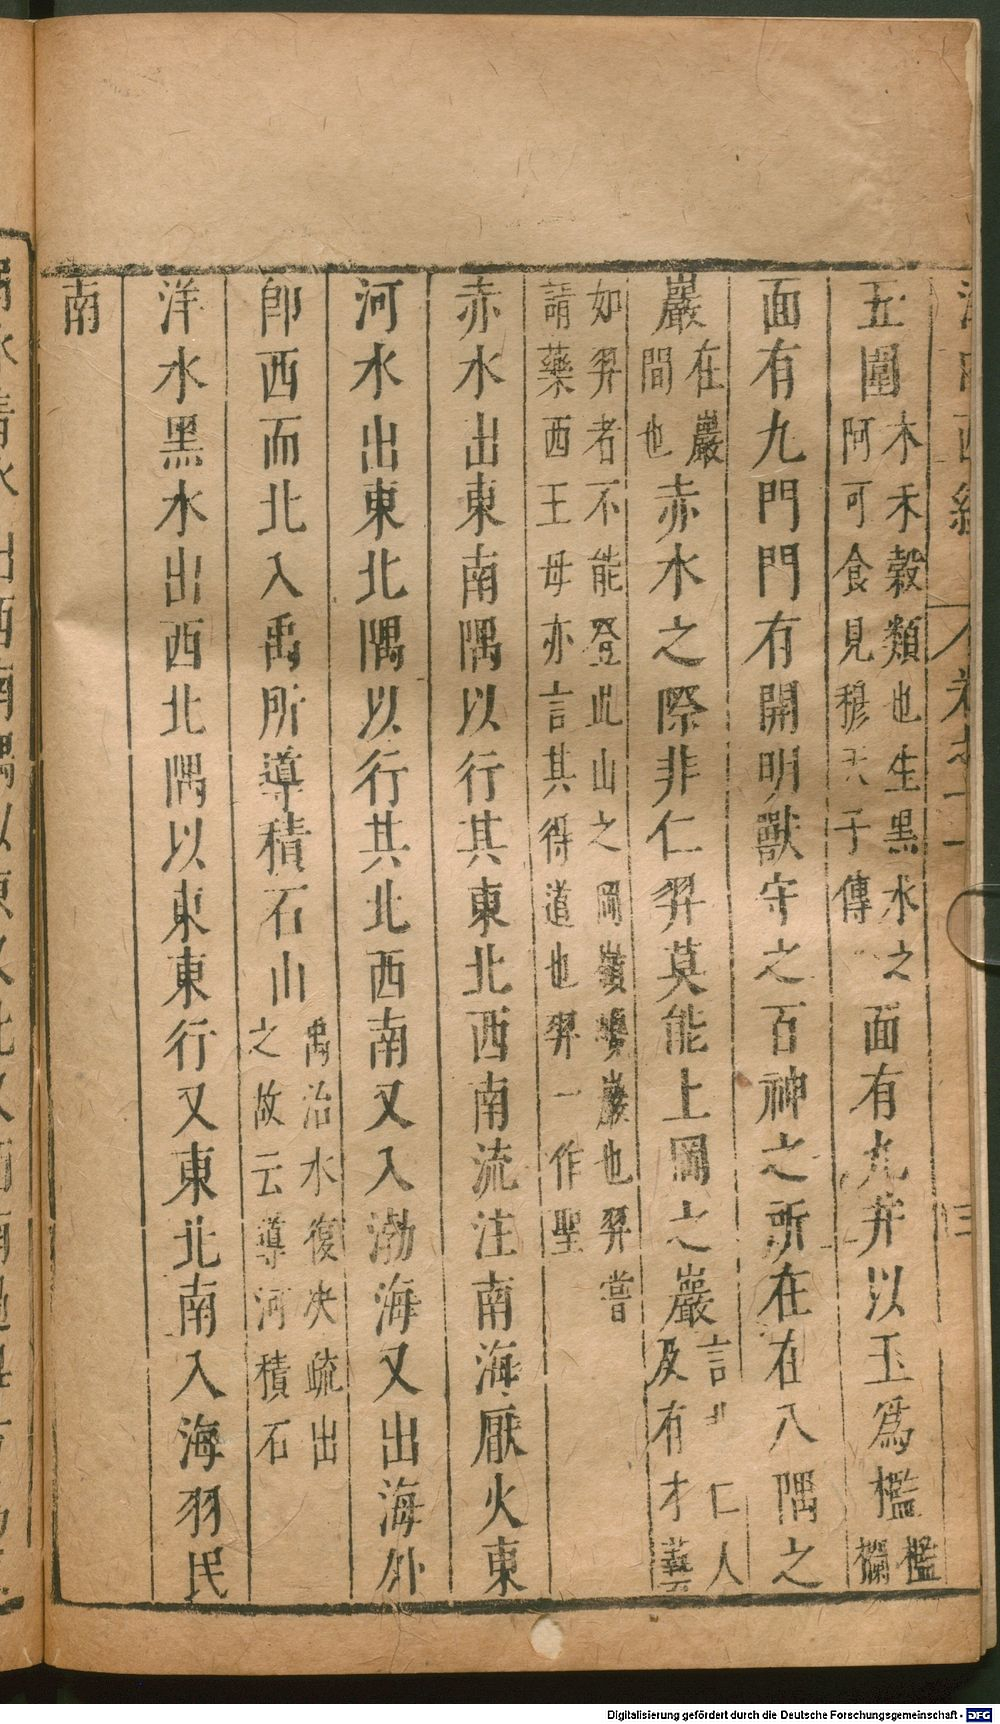 五圍木禾穀類也生黑水之阿可食見穆天子傳面有九井以玉爲檻檻欄
面有九門門有開明獸守之百神之所在在八隅之
巖在巖間也赤水之際非仁羿莫能上岡之巖言非仁人及有才藝
如羿者不能登此山之岡嶺巉巖也羿嘗請藥西王母亦言其得道也羿一作聖
赤水出東南隅以行其東北西南流注南海厭火東
河水出東北隅以行其北西南又入渤海又出海外
卽西而北入禹所導積石山禹治水復决疏出之故云導河積石
洋水黑水出西北隅以東東行又東北南入海羽民
南
Digitalisierung gefördert durch die Deutsche Forschungsgemeinschaft - DFG